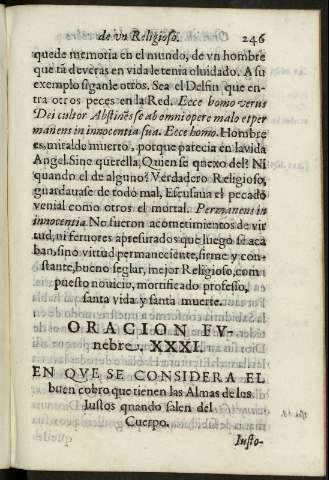 de vn Religioso. 246
quede memoria en el mundo, de vn hombre
que tã deveras en vida le tenia oluidado. A su
exemplo siganle otros. Sea el Delfin que en-
tra otros peces en la Red. Ecce homo verus
Dei cultor Abstinẽs se ab omni opere malo et per
manẽns in innocentia sua. Ecce homo. Hombre
es, miralde muerto, porque parecia en la vida
Angel. Sine querella, Quien se quexo del? Ni
quando el de alguno? Verdadero Religioso,
guardauase de todo mal, Escusaua el pecado
venial como otros el mortal. Permanens in
innocentia. No fueron acometimientos de vir
tud, ni feruores apresurados que luego se aca
ban, sinò virtud permaneciente, firme y con-
stante, bueno seglar, mejor Religioso, com
puesto nouicio, mortificado professo,
santa vida y santa muerte.
ORACION FV-
nebre, XXXI.
EN QVE SE CONSIDERA EL
buen cobro que tienen las Almas de los
Iustos quando salen del
Cuerpo.
Iusto-